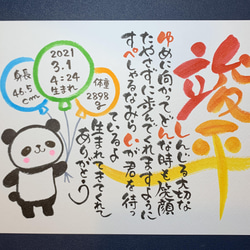 竣平
しんじる大切な
ゆめに向かってどんな時も笑顔
たやさずに歩んでくれますように
すぺしゃるなみらいが君を待っ
ているよ
生まれてきてくれて
ありがとう
2021
3.1
4:24
生まれ
身長
46.5
cm
体重
2898
g